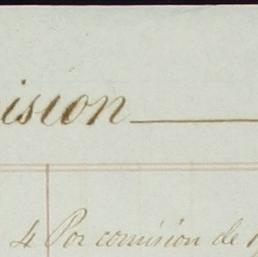 ision
4 Por comisión de